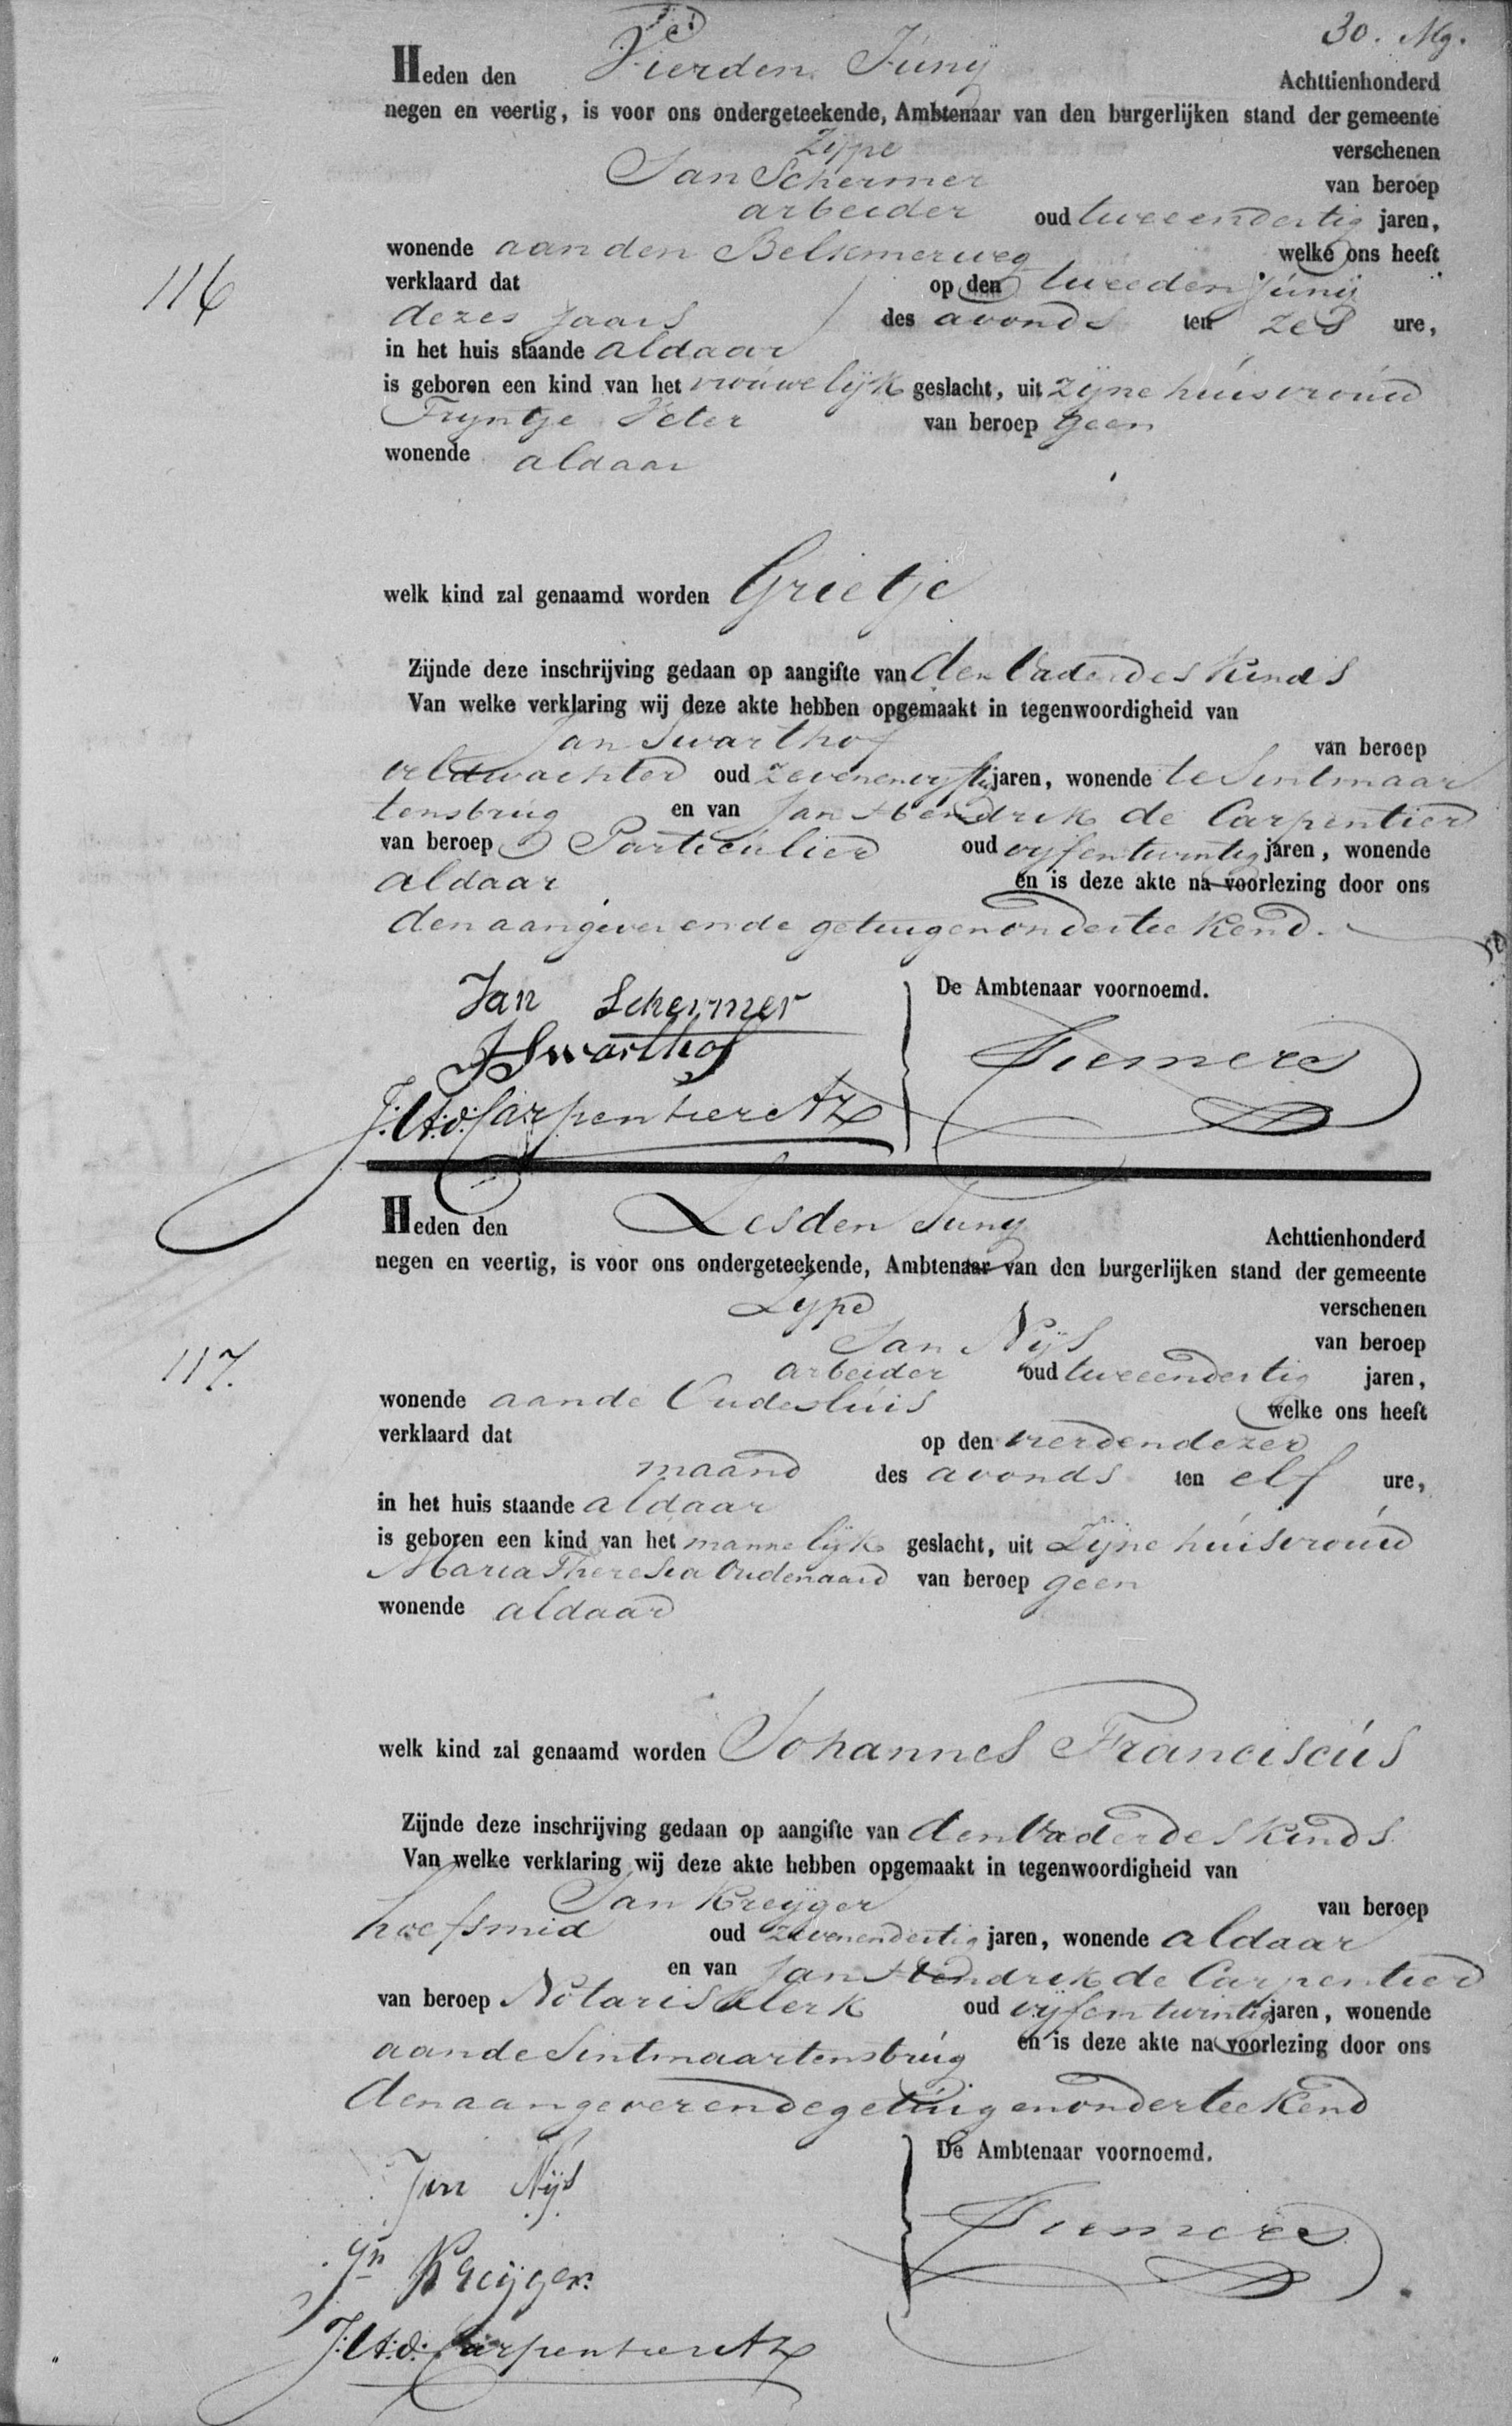 30. Mg.
Heden den Vierden Junij Achttienhonderd
negen en veertig, is voor ons ondergeteekende, Ambtenaar van den burgerlijken stand der gemeente
Zijpe verschenen
Jan Schermer van beroep
arbeider oud tweeendertig jaren,
wonende aan den Belkmerweg welke ons heeft
116
verklaard dat op den tweeden Junij
dezes jaars des avonds ten zes ure,
in het huis staande aldaar
is geboren een kind van het vrouwelijk geslacht, uit zijne huisvrouw
Tryntje Veter van beroep geen
wonende aldaar
welk kind zal genaamd worden Grietje
Zijnde deze inschrijving gedaan op aangifte van den Vader des Kinds
Van welke verklaring wij deze akte hebben opgemaakt in tegenwoordigheid van
Jan Swarthof van beroep
veldwachter oud zevenenvyftig jaren, wonende te Sintmaar
tensbrug en van Jan Hendrik de Carpentier
van beroep Particulier oud vyfentwintig jaren, wonende
aldaar en is deze akte na voorlezing door ons
den aangever en de getuigen onderteekend.
De Ambtenaar voornoemd.
Jan Schermer
JSwarthof
J:H:d:Carpentier Az
Heden den Zesden Juny Achttienhonderd
negen en veertig, is voor ons ondergeteekende, Ambtenaar van den burgerlijken stand der gemeente
Zype verschenen
Jan Nijs van beroep
117.
arbeider oud tweeendertig jaren,
wonende aan de Oudesluis welke ons heeft
verklaard dat op den vierden dezer
maand des avonds ten elf ure,
in het huis staande aldaar
is geboren een kind van het mannelijk geslacht, uit Zijne huisvrouw
Maria Theresia Oudenaard van beroep geen
wonende aldaar
welk kind zal genaamd worden Johannes Franciscus
Zijnde deze inschrijving gedaan op aangifte van den Vader des Kinds
Van welke verklaring wij deze akte hebben opgemaakt in tegenwoordigheid van
Jan Kreijger van beroep
hoefsmid oud zevenendertig jaren, wonende aldaar
en van Jan Hendrik de Carpentier
van beroep Notarisklerk oud vyfentwintig jaren, wonende
aan de Sintmaartensbrug en is deze akte na voorlezing door ons
den aangever en de getuigen onderteekend
De Ambtenaar voornoemd.
Jan Nijs
Jn Kreijger.
J:H:d:Carpentier Az